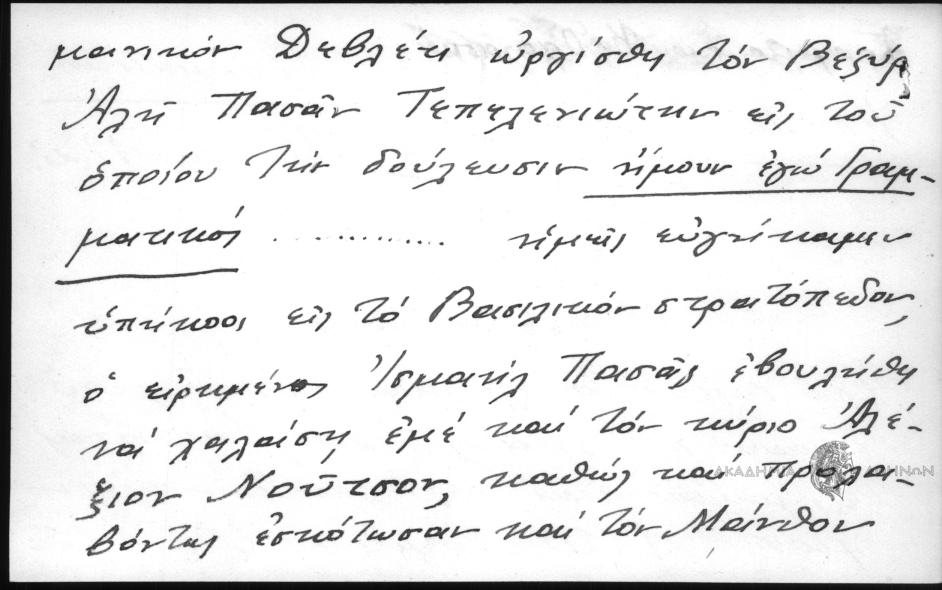 μανικόν Δεβλέτι ὠργίσθη τόν Βεζύρ
Ἀλῆ Πασᾶν Τεπελενιώτην εἰς τοῦ
ὁποίου τήν δούλευσιν ἤμουν ἐγώ Γραμ-
ματικός ............. ἡμεῖς εὐγήκαμεν
ὑπήκοοι εἰς τό Βασιλικόν στρατόπεδον,
ὁ εἰρημένος Ἰσμαήλ Πασᾶς ἐβουλήθη
νά χαλάση ἐμέ καί τόν κύριο Ἀλέ-
ξιον Νοῦτσον, καθώς καί προλα-
βόντως ἐσκότωσαν καί τόν Μάνθον
ΑΚΑΔΗΜΙΑ ΑΘΗΝΩΝ